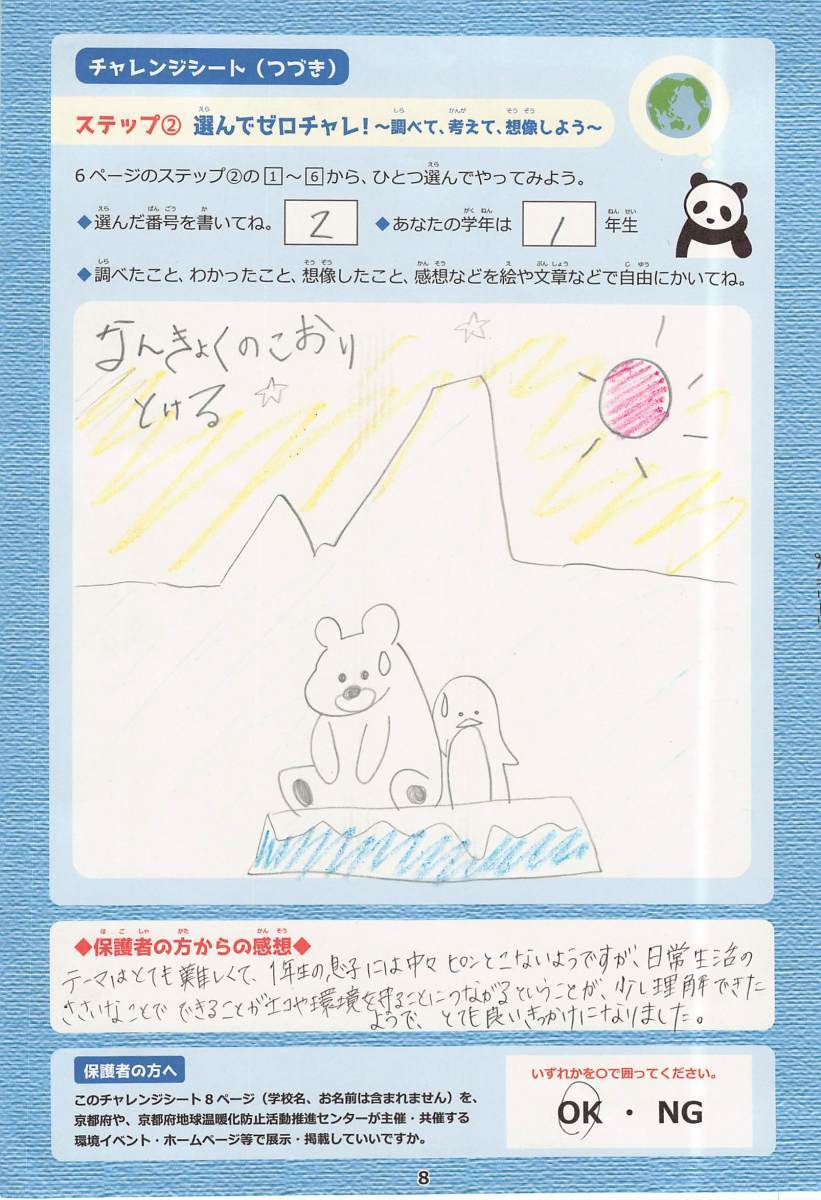 チャレンジシート（つづき）
ステップ② 選んでゼロチャレ！～調べて、考えて、想像しよう～
6ページのステップ②の1～6から、ひとつ選んでやってみよう。
◆選んだ番号を書いてね。 2 ◆あなたの学年は 1 年生
◆調べたこと、わかったこと、想像したこと、感想などを絵や文章などで自由にかいてね。
なんきょくのこおり
とける
◆保護者の方からの感想◆
テーマはとても難しくて、1年生の息子には中々ピンとこないようですが、日常生活の
ささいなことでできることがエコや環境を守ることにつながるということが、少し理解できた
ようで、とても良いきっかけになりました。
保護者の方へ
このチャレンジシート8ページ（学校名、お名前は含まれません）を、
京都府や、京都府地球温暖化防止活動推進センターが主催・共催する
環境イベント・ホームページ等で展示・掲載していいですか。
いずれかを〇で囲ってください。
OK ・ NG
8